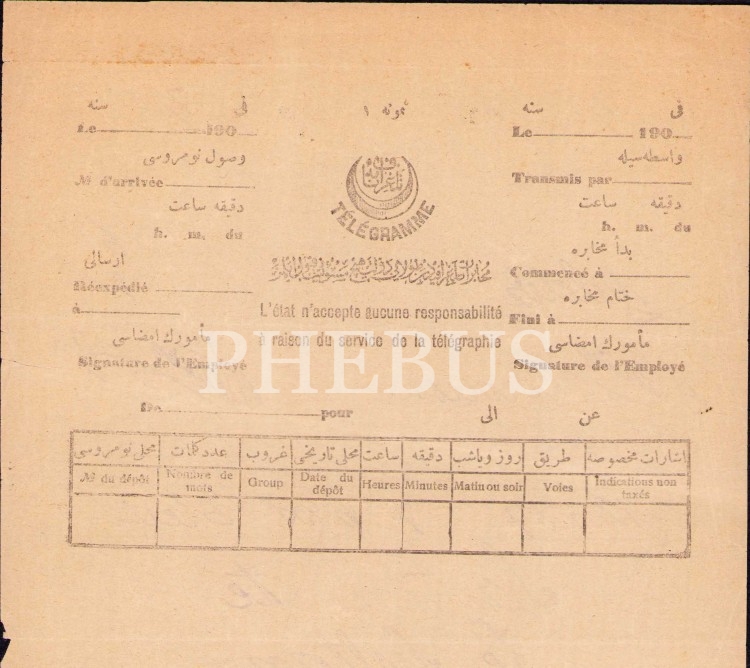 فى سنه نمونه ١ فى سنه
Le 190 Le 190
وصول نومروسى واسطه سيله
№ d'arrivée Transmis par
دقيقه ساعت دقيقه ساعت
h. m. du h. m. du
تلغراف
TÉLÉGRAMME
بدأ مخابره
ارسالى Commencé à
Réexpédié ختام مخابره
à L'état n'accepte aucune responsabilité Fini à
مأمورك امضاسى à raison du service de la télégraphie مأمورك امضاسى
Signature de l'Employé Signature de l'Employé
PHEBUS
De pour عن الى
محل نومروسى عدد كلمات غروب محلى تاريخى ساعت دقيقه روز وياشب طريق اشارات مخصوصه
№ du dépôt Nombre de mots Group Date du dépôt Heures Minutes Matin ou soir Voies Indications non taxés